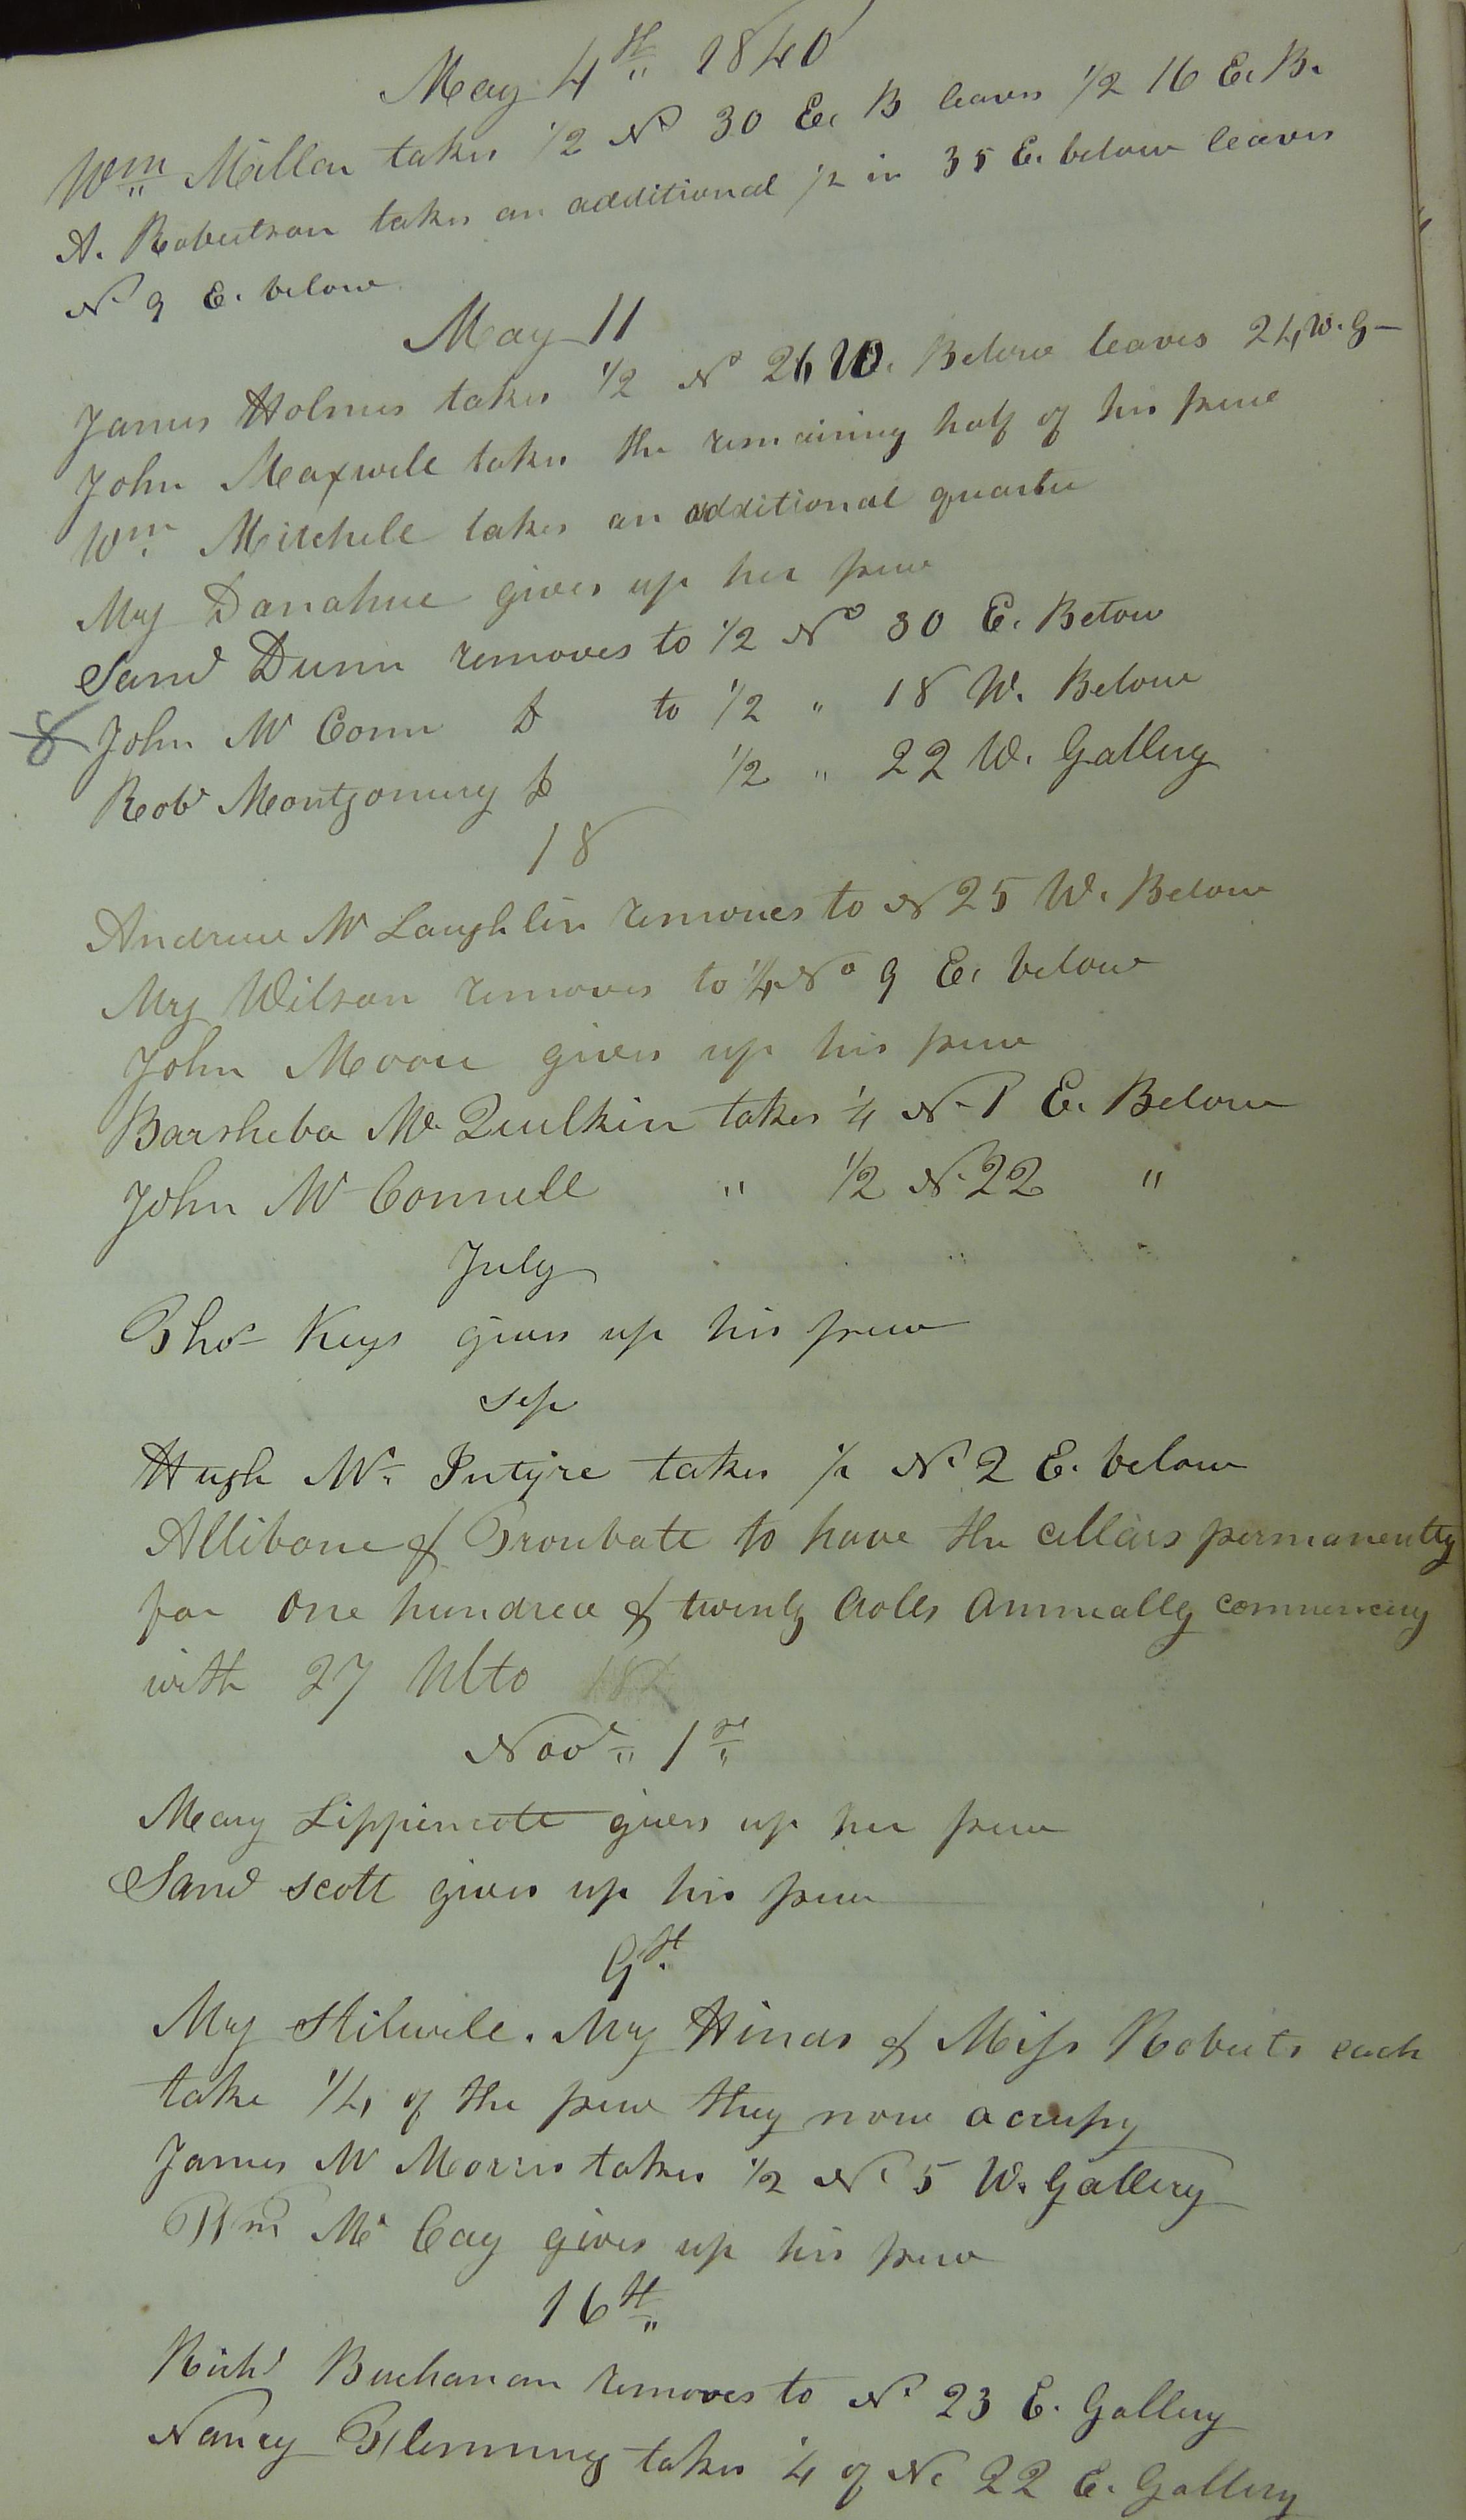 May 4th 1840
Wm Millar takes 1/2 No 30 E. B leaves 1/2 16 E. B.
A. Robertson takes an additional 1/2 in 35 E. below leaves
No 9 E. below
May 11
James Holmes takes 1/2 No 26 W. Below leaves 24 W. G
John Maxwell takes the remaining half of his pew
Wm Mitchell takes an additional quarter
Mrs Donahue gives up her pew
Saml Dunn removes to 1/2 No 30 E. Below
John Mc Conn Do to 1/2 " 18 W. Below
Robt Montgomery Do 1/2 " 22 W. Gallery
18
Andrew Mc Laughlin removes to No 25 W. Below
Mrs Wilson removes to 1/4 No 9 E. below
John Moore gives up his pew
Barsheba Mc Quilkin takes 1/4 No 1 E. Below
John Mc Connell " 1/2 No 22 "
July
Thos Keys gives up his pew
Sep
Hugh Mc Intyre takes 1/2 No 2 E. below
Allibone & Troubate to have the cellars permanently
for one hundred & twenty dolls annually commencing
with 27 Ulto
Novr 1st
Mary Lippincott gives up her pew
Saml Scott gives up his pew
9th
Mrs Stilwell. Mrs Hinds & Miss Roberts each
take 1/4 of the pew they now occupy
James Mc Morris takes 1/2 No 5 W. Gallery
Wm Mc Cay gives up his pew
16th
Richd Buchanan removes to No 23 E. Gallery
Nancy Flemming takes 1/4 of No 22 E. Gallery